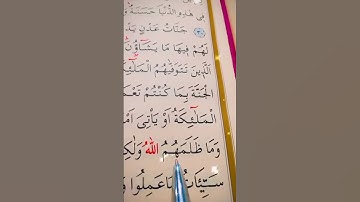 فِي هٰذِهِ الدُّنْيَا حَسَنَةٌ
جَنَّاتُ عَدْنٍ يَدْ
لَهُمْ فِيهَا مَا يَشَاؤُنَ
الَّذِينَ تَتَوَفّٰيهُمُ الْمَلٰٓئِكَ
الْجَنَّةَ بِمَا كُنْتُمْ تَعْمَ
الْمَلٰٓئِكَةُ اَوْ يَأْتِيَ اَمْ
وَمَا ظَلَمَهُمُ اللّٰهُ وَلٰكِ
سَيِّئَاتُ مَا عَمِلُوا وَ